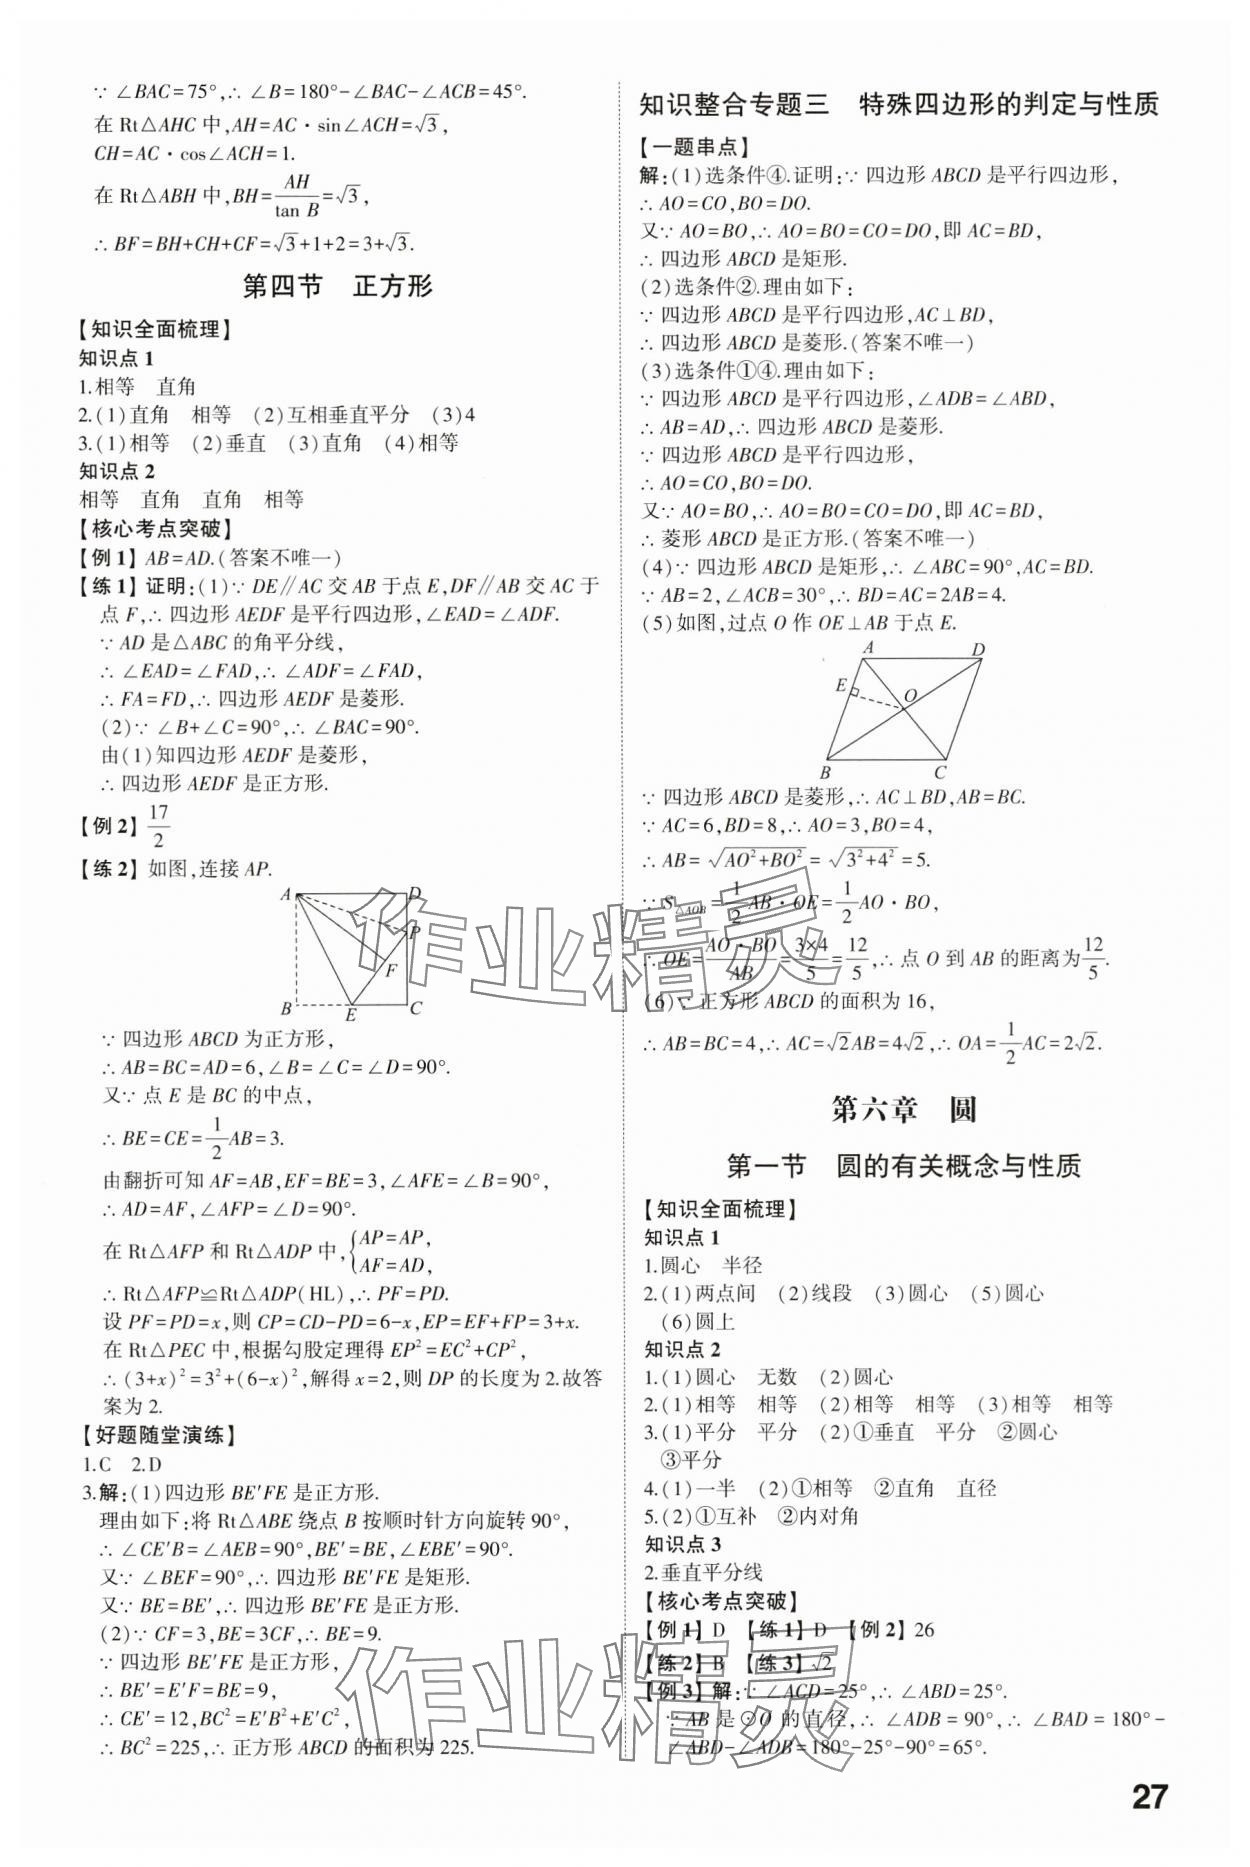 ∵ ∠BAC=75°,∴ ∠B=180°-∠BAC-∠ACB=45°.
在 Rt△AHC 中,AH=AC·sin∠ACH=√3,
CH=AC·cos∠ACH=1.
在 Rt△ABH 中,BH=AH/tan B=√3,
∴ BF=BH+CH+CF=√3+1+2=3+√3.
第四节 正方形
【知识全面梳理】
知识点 1
1.相等 直角
2.(1)直角 相等 (2)互相垂直平分 (3)4
3.(1)相等 (2)垂直 (3)直角 (4)相等
知识点 2
相等 直角 直角 相等
【核心考点突破】
【例 1】 AB=AD.(答案不唯一)
【练 1】 证明:(1)∵ DE∥AC 交 AB 于点 E,DF∥AB 交 AC 于
点 F,∴ 四边形 AEDF 是平行四边形,∠EAD=∠ADF.
∵ AD 是△ABC 的角平分线,
∴ ∠EAD=∠FAD,∴ ∠ADF=∠FAD,
∴ FA=FD,∴ 四边形 AEDF 是菱形.
(2)∵ ∠B+∠C=90°,∴ ∠BAC=90°.
由(1)知四边形 AEDF 是菱形,
∴ 四边形 AEDF 是正方形.
【例 2】 17/2
【练 2】 如图,连接 AP.
A D
P
F
B E C
∵ 四边形 ABCD 为正方形,
∴ AB=BC=AD=6,∠B=∠C=∠D=90°.
又∵ 点 E 是 BC 的中点,
∴ BE=CE=1/2AB=3.
由翻折可知 AF=AB,EF=BE=3,∠AFE=∠B=90°,
∴ AD=AF,∠AFP=∠D=90°.
在 Rt△AFP 和 Rt△ADP 中,{AP=AP,
AF=AD,
∴ Rt△AFP≌Rt△ADP(HL),∴ PF=PD.
设 PF=PD=x,则 CP=CD-PD=6-x,EP=EF+FP=3+x.
在 Rt△PEC 中,根据勾股定理得 EP²=EC²+CP²,
∴ (3+x)²=3²+(6-x)²,解得 x=2,则 DP 的长度为 2.故答
案为 2.
【好题随堂演练】
1.C 2.D
3.解:(1)四边形 BE′FE 是正方形.
理由如下:将 Rt△ABE 绕点 B 按顺时针方向旋转 90°,
∴ ∠CE′B=∠AEB=90°,BE′=BE,∠EBE′=90°.
又∵ ∠BEF=90°,∴ 四边形 BE′FE 是矩形.
又∵ BE=BE′,∴ 四边形 BE′FE 是正方形.
(2)∵ CF=3,BE=3CF,∴ BE=9.
∵ 四边形 BE′FE 是正方形,
∴ BE′=E′F=BE=9,
∴ CE′=12,BC²=E′B²+E′C²,
∴ BC²=225,∴ 正方形 ABCD 的面积为 225.
知识整合专题三 特殊四边形的判定与性质
【一题串点】
解:(1)选条件④.证明:∵ 四边形 ABCD 是平行四边形,
∴ AO=CO,BO=DO.
又∵ AO=BO,∴ AO=BO=CO=DO,即 AC=BD,
∴ 四边形 ABCD 是矩形.
(2)选条件②.理由如下:
∵ 四边形 ABCD 是平行四边形,AC⊥BD,
∴ 四边形 ABCD 是菱形.(答案不唯一)
(3)选条件①④.理由如下:
∵ 四边形 ABCD 是平行四边形,∠ADB=∠ABD,
∴ AB=AD,∴ 四边形 ABCD 是菱形.
∵ 四边形 ABCD 是平行四边形,
∴ AO=CO,BO=DO.
又∵ AO=BO,∴ AO=BO=CO=DO,即 AC=BD,
∴ 菱形 ABCD 是正方形.(答案不唯一)
(4)∵ 四边形 ABCD 是矩形,∴ ∠ABC=90°,AC=BD.
∵ AB=2,∠ACB=30°,∴ BD=AC=2AB=4.
(5)如图,过点 O 作 OE⊥AB 于点 E.
A D
E O
B C
∵ 四边形 ABCD 是菱形,∴ AC⊥BD,AB=BC.
∵ AC=6,BD=8,∴ AO=3,BO=4,
∴ AB=√(AO²+BO²)=√(3²+4²)=5.
∵ S△AOB=1/2AB·OE=1/2AO·BO,
∴ OE=AO·BO/AB=3×4/5=12/5,∴ 点 O 到 AB 的距离为12/5.
(6)∵ 正方形 ABCD 的面积为 16,
∴ AB=BC=4,∴ AC=√2AB=4√2,∴ OA=1/2AC=2√2.
第六章 圆
第一节 圆的有关概念与性质
【知识全面梳理】
知识点 1
1.圆心 半径
2.(1)两点间 (2)线段 (3)圆心 (5)圆心
(6)圆上
知识点 2
1.(1)圆心 无数 (2)圆心
2.(1)相等 相等 (2)相等 相等 (3)相等 相等
3.(1)平分 平分 (2)①垂直 平分 ②圆心
③平分
4.(1)一半 (2)①相等 ②直角 直径
5.(2)①互补 ②内对角
知识点 3
2.垂直平分线
【核心考点突破】
【例 1】 D 【练 1】 D 【例 2】 26
【练 2】 B 【练 3】 √2
【例 3】 解:∵ ∠ACD=25°,∴ ∠ABD=25°.
∵ AB 是⊙O 的直径,∴ ∠ADB=90°,∴ ∠BAD=180°-
∠ABD-∠ADB=180°-25°-90°=65°.
作业精灵
作业精灵
27